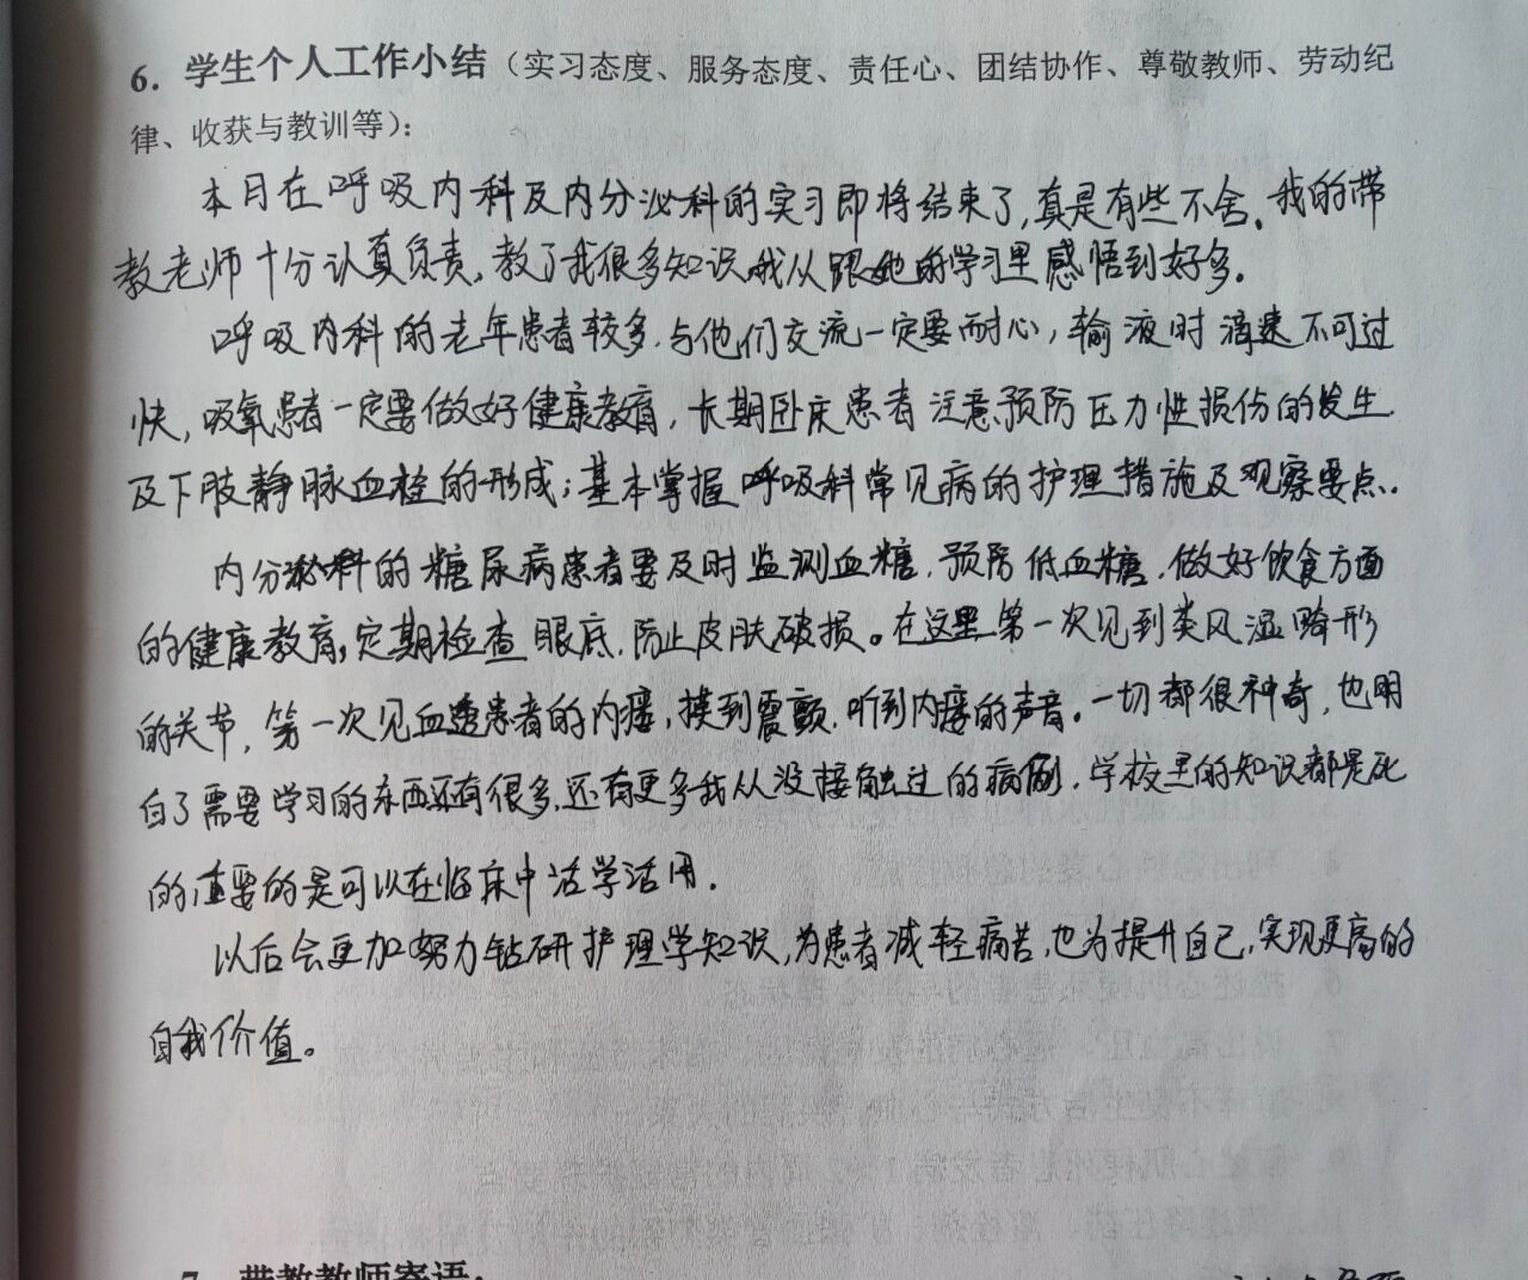 6. 学生个人工作小结（实习态度、服务态度、责任心、团结协作、尊敬教师、劳动纪
律、收获与教训等）：
本月在呼吸内科及内分泌科的实习即将结束了,真是有些不舍。我的带
教老师十分认真负责,教了我很多知识,我从跟她的学习里感悟到好多。
呼吸内科的老年患者较多,与他们交流一定要耐心,输液时滴速不可过
快,吸氧患者一定要做好健康教育,长期卧床患者注意预防压力性损伤的发生
及下肢静脉血栓的形成;基本掌握呼吸科常见病的护理措施及观察要点.
内分泌科的糖尿病患者要及时监测血糖,预防低血糖,做好饮食方面
的健康教育,定期检查眼底,防止皮肤破损。在这里第一次见到类风湿畸形
的关节,第一次见血透患者的内瘘,摸到震颤,听到内瘘的声音。一切都很神奇,也明
白了需要学习的东西还有很多,还有更多我从没接触过的病例.学校里的知识都是死
的,重要的是可以在临床中活学活用.
以后会更加努力钻研护理学知识,为患者减轻病苦,也为提升自己,实现更高的
自我价值。
7. 带教教师寄语: